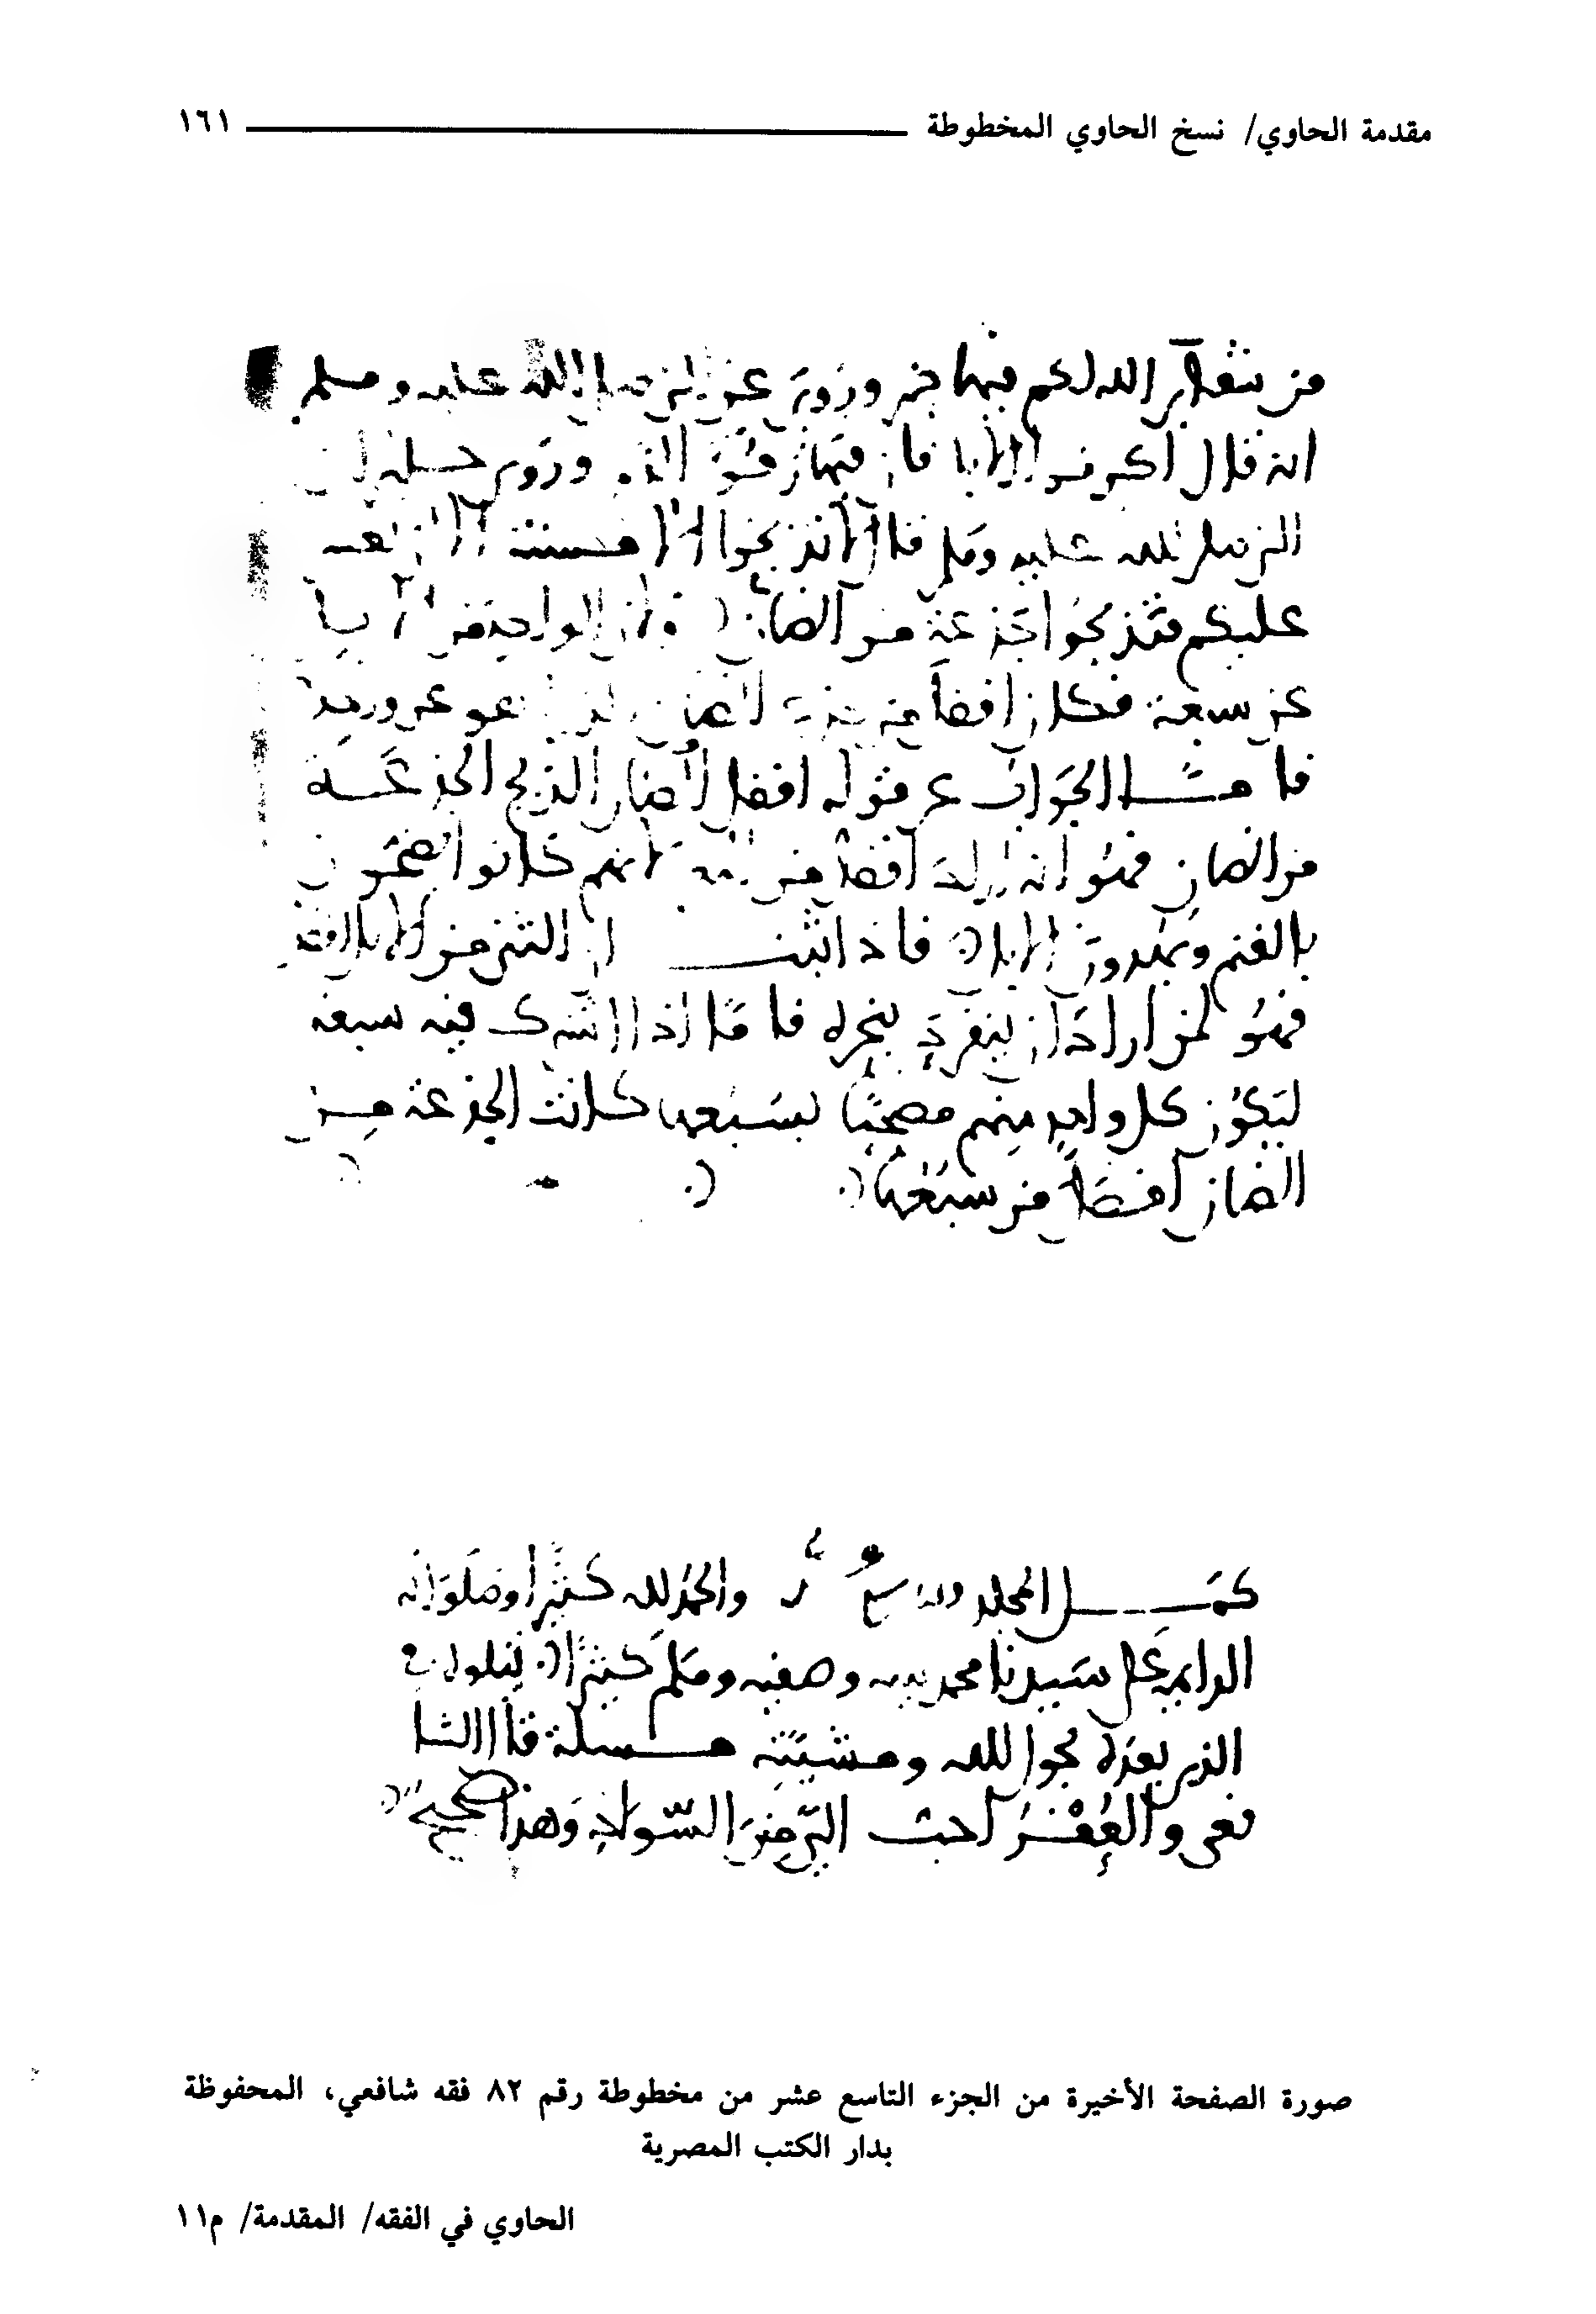 مقدمة الحاوي/ نسخ الحاوي المخطوطة ١٦١
من شعائر الله لكم فيها خير وروي عن النبي صلى الله عليه وسلم
انه قال اكرموا الابل فان فيها رقوء الدم وروي
النبي صلى الله عليه وسلم قال لا تذبحوا الا مسنة الا ان
عليكم فتذبحوا جذعة من الضان ولان الواحد من
عن سبعة فكان افضل من
فامــا الجواب عن قوله افضل الضان الذبح الجذعــة
من الضان فهو انه اراد افضل من لانهم كانوا يضحون
بالغنم ويهدون الابل فاذا ثبت ان الثني من الابل افضل
فهو لمن اراد ان ينفرد بنحره فاما اذا اشترك فيه سبعة
ليكون كل واحد منهم مضحيا بسبعها كانت الجذعة مــن
الضان افضل من سبعها
كمــل المجلد التاسع والحمد لله كثيرا وصلواته
على سيدنا محمد وسلم كثيرا يتلوه في
الذي بعده بحول الله ومشيئته مــسلة قال الشا
فعي والعفر احب الي من السواد وهذا صحيح
صورة الصفحة الأخيرة من الجزء التاسع عشر من مخطوطة رقم ٨٢ فقه شافعي، المحفوظة
بدار الكتب المصرية
الحاوي في الفقه/ المقدمة/ م١١